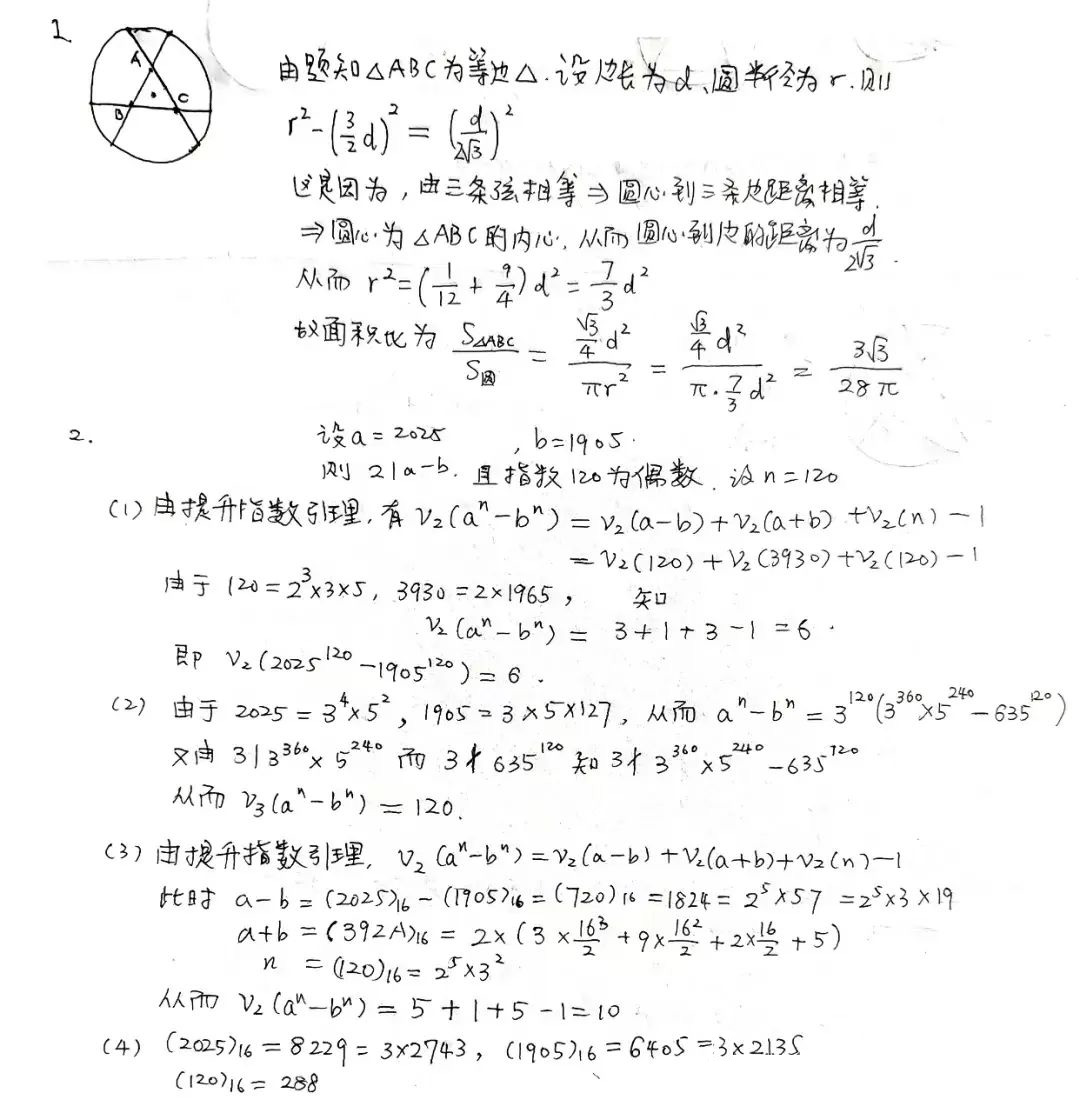 1
A
B
C
由题知△ABC为等边△.设边长为d、圆半径为r.则
r²-(3/2 d)² = (d/2√3)²
这是因为,由三条弦相等⇒圆心到三条边距离相等.
⇒圆心为△ABC的内心,从而圆心到边的距离为 d/2√3.
从而 r²=(1/12 + 9/4)d² = 7/3 d²
故面积比为 S△ABC/S圆 = (√3/4 d²)/(πr²) = (√3/4 d²)/(π·7/3 d²) = 3√3/28π
2.
设a=2025 , b=1905.
则 2|a-b. 且指数120为偶数. 设n=120
(1) 由提升指数引理,有 v₂(aⁿ-bⁿ) = v₂(a-b)+v₂(a+b)+v₂(n)-1
= v₂(120)+v₂(3930)+v₂(120)-1
由于 120=2³×3×5, 3930=2×1965, 知
v₂(aⁿ-bⁿ) = 3+1+3-1=6.
即 v₂(2025¹²⁰-1905¹²⁰)=6.
(2) 由于 2025=3⁴×5², 1905=3×5×127, 从而 aⁿ-bⁿ=3¹²⁰(3³⁶⁰×5²⁴⁰-635¹²⁰)
又由 3|3³⁶⁰×5²⁴⁰ 而 3∤635¹²⁰ 知 3∤3³⁶⁰×5²⁴⁰-635¹²⁰
从而 v₃(aⁿ-bⁿ)=120.
(3) 由提升指数引理, v₂(aⁿ-bⁿ)=v₂(a-b)+v₂(a+b)+v₂(n)-1
此时 a-b=(2025)₁₆-(1905)₁₆=(720)₁₆=1824=2⁵×57=2⁵×3×19
a+b=(392A)₁₆=2×(3×16³/2+9×16²/2+2×16/2+5)
n =(120)₁₆=2⁵×3²
从而 v₂(aⁿ-bⁿ)=5+1+5-1=10
(4) (2025)₁₆=8229=3×2743, (1905)₁₆=6405=3×2135
(120)₁₆=288